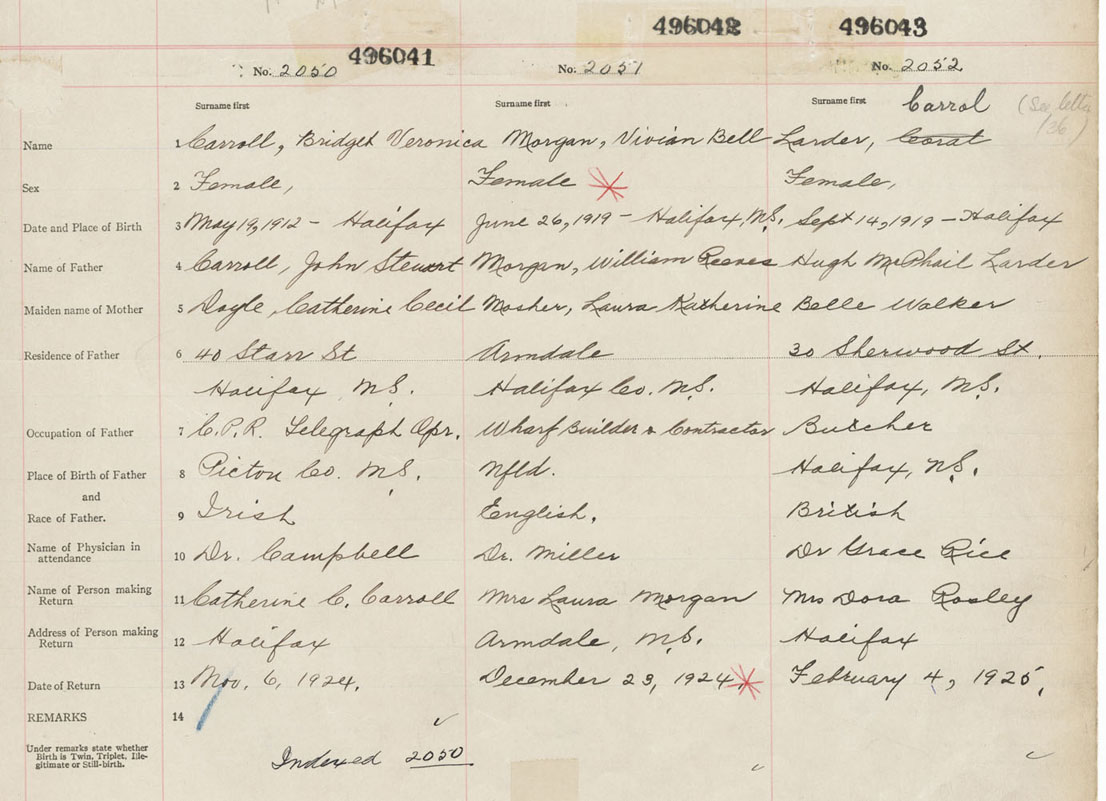 496041 496042 496043
No. 2050 No. 2051 No. 2052
Surname first Surname first Surname first Carrol (See letter
/36)
Name 1 Carroll, Bridget Veronica Morgan, Vivian Bell Larder, Coral
Sex 2 Female, Female Female,
Date and Place of Birth 3 May 19, 1912 - Halifax June 26, 1919 - Halifax, N.S. Sept 14, 1919 - Halifax
Name of Father 4 Carroll, John Stewart Morgan, William Reeves Hugh McPhail Larder
Maiden name of Mother 5 Doyle, Catherine Cecil Mosher, Laura Katherine Belle Walker
Residence of Father 6 40 Starr St Armdale 30 Sherwood St.
Halifax, N.S. Halifax Co. N.S. Halifax, N.S.
Occupation of Father 7 C.P.R. Telegraph Opr. Wharf Builder & Contractor Butcher
Place of Birth of Father 8 Pictou Co. N.S. Nfld. Halifax, N.S.
and
Race of Father. 9 Irish English. British
Name of Physician in
attendance 10 Dr. Campbell Dr. Miller Dr Grace Rice
Name of Person making
Return 11 Catherine C. Carroll Mrs Laura Morgan Mrs Dora Rosley
Address of Person making
Return 12 Halifax Armdale, N.S. Halifax
Date of Return 13 Nov. 6, 1924. December 23, 1924. February 4, 1925.
REMARKS 14
Under remarks state whether
Birth is Twin, Triplet, Ille-
gitimate or Still-birth.
Indexed 2050